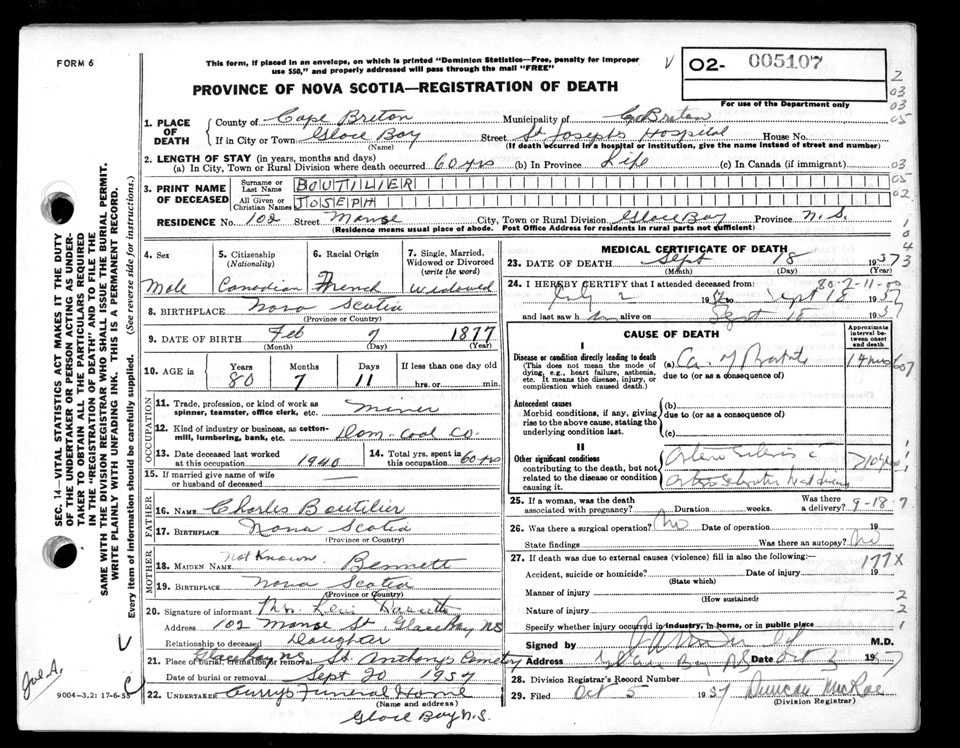 FORM 6
This form, if placed in an envelope, on which is printed "Dominion Statistics—Free, penalty for improper
use $50," and properly addressed will pass through the mail "FREE"
PROVINCE OF NOVA SCOTIA—REGISTRATION OF DEATH
V 02- 005107
For use of the Department only
2
03
03
05
03
05
02
1
0
4
3
SEC. 14—VITAL STATISTICS ACT MAKES IT THE DUTY
OF THE UNDERTAKER OR PERSON ACTING AS UNDER-
TAKER TO OBTAIN ALL THE PARTICULARS REQUIRED
IN THE "REGISTRATION OF DEATH" AND TO FILE THE
SAME WITH THE DIVISION REGISTRAR WHO SHALL ISSUE THE BURIAL PERMIT.
WRITE PLAINLY WITH UNFADING INK. THIS IS A PERMANENT RECORD.
Every item of information should be carefully supplied. (See reverse side for instructions.)
1. PLACE OF DEATH
County of Cape Breton Municipality of C. Breton
If in City or Town Glace Bay Street St Josephs Hospital House No.
(Name) (If death occurred in a hospital or institution, give the name instead of street and number)
2. LENGTH OF STAY (in years, months and days)
(a) In City, Town or Rural Division where death occurred 60 yrs (b) In Province Life (c) In Canada (if immigrant)
3. PRINT NAME OF DECEASED
Surname or Last Name BOUTILIER
All Given or Christian Names JOSEPH
RESIDENCE No. 102 Street Manse City, Town or Rural Division Glace Bay Province N.S.
(Residence means usual place of abode. Post Office Address for residents in rural parts not sufficient)
4. Sex
Male
5. Citizenship
(Nationality)
Canadian
6. Racial Origin
French
7. Single, Married,
Widowed or Divorced
(write the word)
Widowed
8. BIRTHPLACE Nova Scotia
(Province or Country)
9. DATE OF BIRTH Feb 7 1877
(Month) (Day) (Year)
10. AGE in
Years Months Days If less than one day old
80 7 11 hrs. or min.
OCCUPATION
11. Trade, profession, or kind of work as
spinner, teamster, office clerk, etc. Miner
12. Kind of industry or business, as cotton-
mill, lumbering, bank, etc. Dom. Coal Co.
13. Date deceased last worked
at this occupation 1940
14. Total yrs. spent in
this occupation 60 yrs
15. If married give name of wife
or husband of deceased —
FATHER
16. NAME Charles Boutilier
17. BIRTHPLACE Nova Scotia
(Province or Country)
MOTHER
18. MAIDEN NAME Not Known Bennett
19. BIRTHPLACE Nova Scotia
(Province or Country)
20. Signature of informant Mrs. Levi
Address 102 Manse St. Glace Bay NS
Relationship to deceased Daughter
21. Place of burial, cremation or removal Glace Bay NS St. Anthonys Cemetery
Date of burial or removal Sept 20 1957
22. UNDERTAKER Curry's Funeral Home
(Name and address)
Glace Bay N.S.
V
C
Jul A.
9004-3.21: 17-6-55
MEDICAL CERTIFICATE OF DEATH
23. DATE OF DEATH Sept 18 1957
(Month) (Day) (Year)
80-7-11-00
24. I HEREBY CERTIFY that I attended deceased from:
July 2 1956 to Sept 18 1957
and last saw him alive on Sept 18 1957
CAUSE OF DEATH
Approximate
interval be-
tween onset
and death
I
Disease or condition directly leading to death
(This does not mean the mode of
dying, e.g., heart failure, asthenia,
etc. It means the disease, injury, or
complication which caused death.)
(a) Ca. of Prostate
due to (or as a consequence of)
14 mos
607
Antecedent causes
Morbid conditions, if any, giving
rise to the above cause, stating the
underlying condition last.
(b)
due to (or as a consequence of)
(c)
II
Other significant conditions
contributing to the death, but not
related to the disease or condition
causing it.
>10 yrs
1
1
1
25. If a woman, was the death
associated with pregnancy? Duration weeks. Was there
a delivery? 9-18-7
26. Was there a surgical operation? No Date of operation 19
State findings Was there an autopsy? No
27. If death was due to external causes (violence) fill in also the following:—
177X
Accident, suicide or homicide? Date of injury 19
(State which)
Manner of injury 2
(How sustained)
Nature of injury 2
Specify whether injury occurred in industry, in home, or in public place 1
Signed by M.D.
Address Glace Bay NS Date Oct 5 1957
28. Division Registrar's Record Number
29. Filed Oct 5 1957 Duncan McRae
(Division Registrar)